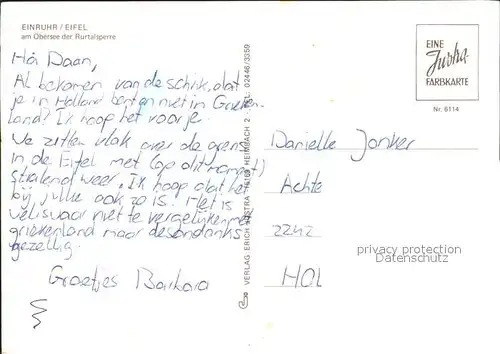 EINRUHR / EIFEL
am Obersee der Rurtalsperre
Hoi Daan,
Al bekomen van de schrik, dat
je in Holland bent en niet in Grieken-
land? Ik hoop het voor je.
We zitten vlak over de grens
in de Eifel met (op dit moment)
stralend weer. Ik hoop dat het
bij jullie ook zo is. Het is
weliswaar niet te vergelijken met
griekenland maar desondanks
gezellig.
Groetjes Barbara
VERLAG ERICH JUSTRA 5169 HEIMBACH 2 TEL. 02446/3359
EINE
Justra-
FARBKARTE
Nr. 6114
Danielle Jonker
Achte
2242
HOL
privacy protection
Datenschutz